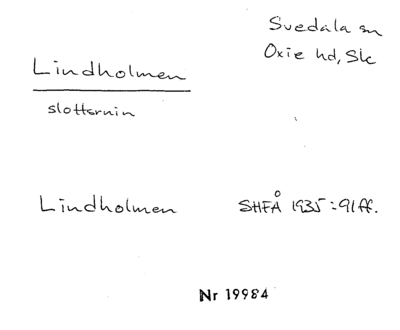 Svedala sn
Oxie hd, Sk
Lindholmen
slottsruin
Lindholmen SHFÅ 1935:91ff.
Nr 19984